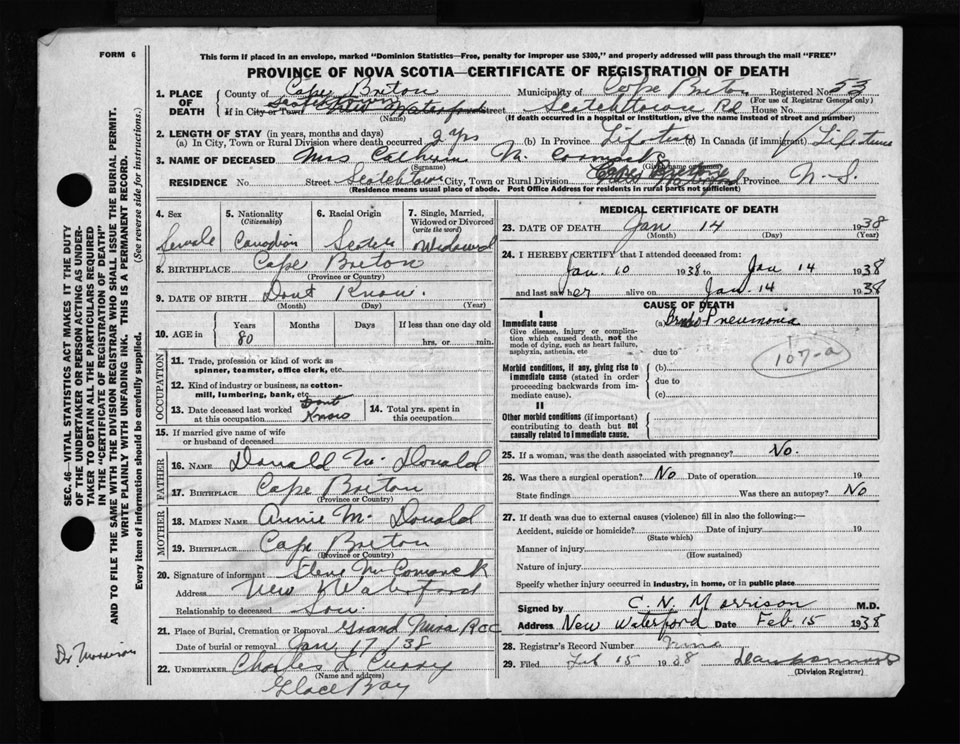 FORM 6
This form if placed in an envelope, marked "Dominion Statistics—Free, penalty for improper use $300," and properly addressed will pass through the mail "FREE"
PROVINCE OF NOVA SCOTIA—CERTIFICATE OF REGISTRATION OF DEATH
1. PLACE OF DEATH
County of Cape Breton Municipality of Cape Breton Registered No. 53
(For use of Registrar General only)
If in City or Town Scotchtown New Waterford Street Scotchtown Rd House No.
(Name) (If death occurred in a hospital or institution, give the name instead of street and number)
2. LENGTH OF STAY (in years, months and days)
(a) In City, Town or Rural Division where death occurred 2 yrs (b) In Province Lifetime (c) In Canada (if immigrant) Lifetime
3. NAME OF DECEASED Mrs Catherine Mc
(Surname) (Given
RESIDENCE No. Street Scotchtown City, Town or Rural Division Province N-S.
(Residence means usual place of abode. Post Office Address for residents in rural parts not sufficient)
4. Sex
Female
5. Nationality
(Citizenship)
Canadian
6. Racial Origin
Scotch
7. Single, Married, Widowed or Divorced
(write the word)
Widowed
8. BIRTHPLACE Cape Breton
(Province or Country)
9. DATE OF BIRTH Dont Know.
(Month) (Day) (Year)
10. AGE in Years Months Days If less than one day old
80 hrs. or min.
OCCUPATION
11. Trade, profession or kind of work as spinner, teamster, office clerk, etc.
12. Kind of industry or business, as cotton-mill, lumbering, bank, etc.
13. Date deceased last worked at this occupation Dont Know
14. Total yrs. spent in this occupation
15. If married give name of wife or husband of deceased
FATHER
16. NAME Donald Mc Donald
17. BIRTHPLACE Cape Breton
(Province or Country)
MOTHER
18. MAIDEN NAME Annie Mc Donald
19. BIRTHPLACE Cape Breton
(Province or Country)
20. Signature of informant Steve Mc
Address New Waterford
Relationship to deceased Son
21. Place of Burial, Cremation or Removal Grand Mira
Date of burial or removal Jan 17/38
22. UNDERTAKER Charles L Curry
(Name and address)
Glace Bay
MEDICAL CERTIFICATE OF DEATH
23. DATE OF DEATH Jan 14 1938
(Month) (Day) (Year)
24. I HEREBY CERTIFY that I attended deceased from:
Jan. 10 1938 to Jan 14 1938
and last saw her alive on Jan. 14 1938
CAUSE OF DEATH
I
Immediate cause (a) Broncho-Pneumonia
Give disease, injury or complication which caused death, not the mode of dying, such as heart failure, asphyxia, asthenia, etc
due to
107-a
Morbid conditions, if any, giving rise to immediate cause (stated in order proceeding backwards from immediate cause).
(b)
due to
(c)
II
Other morbid conditions (if important) contributing to death but not causally related to immediate cause.
25. If a woman, was the death associated with pregnancy? No.
26. Was there a surgical operation? No Date of operation 19
State findings Was there an autopsy? No
27. If death was due to external causes (violence) fill in also the following:—
Accident, suicide or homicide? Date of injury 19
(State which)
Manner of injury
(How sustained)
Nature of injury
Specify whether injury occurred in industry, in home, or in public place
Signed by C. N. Morrison M.D.
Address New Waterford Date Feb. 15 1938
28. Registrar's Record Number
29. Filed Feb 15 1938
(Division Registrar)
SEC. 46—VITAL STATISTICS ACT MAKES IT THE DUTY
OF THE UNDERTAKER OR PERSON ACTING AS UNDER-
TAKER TO OBTAIN ALL THE PARTICULARS REQUIRED
IN THE "CERTIFICATE OF REGISTRATION OF DEATH"
AND TO FILE THE SAME WITH THE DIVISION REGISTRAR WHO SHALL ISSUE THE BURIAL PERMIT.
WRITE PLAINLY WITH UNFADING INK. THIS IS A PERMANENT RECORD.
Every item of information should be carefully supplied. (See reverse side for instructions.)
Dr Morrison